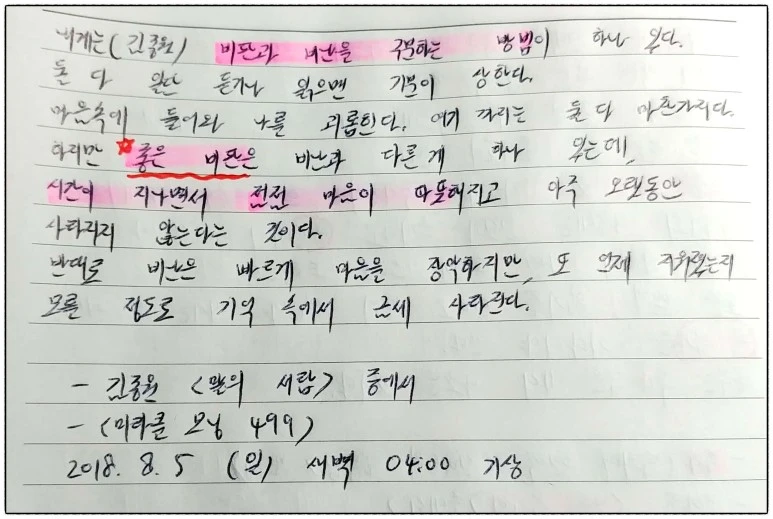 내게는(김종원) 비판과 비난을 구분하는 방법이 하나 있다.
둘 다 일단 듣거나 읽으면 기분이 상한다.
마음속에 들어와 나를 괴롭힌다. 여기 까지는 둘 다 마찬가지다.
하지만 좋은 비판은 비난과 다른 게 하나 있는데,
시간이 지나면서 점점 마음이 따뜻해지고 아주 오랫동안
사라지지 않는다는 것이다.
반대로 비난은 빠르게 마음을 장악하지만, 또 언제 지워졌는지
모를 정도로 기억 속에서 금세 사라진다.
- 김종원 <말의 서랍> 중에서
- <미라클 모닝 499>
2018. 8. 5 (일) 새벽 04:00 기상